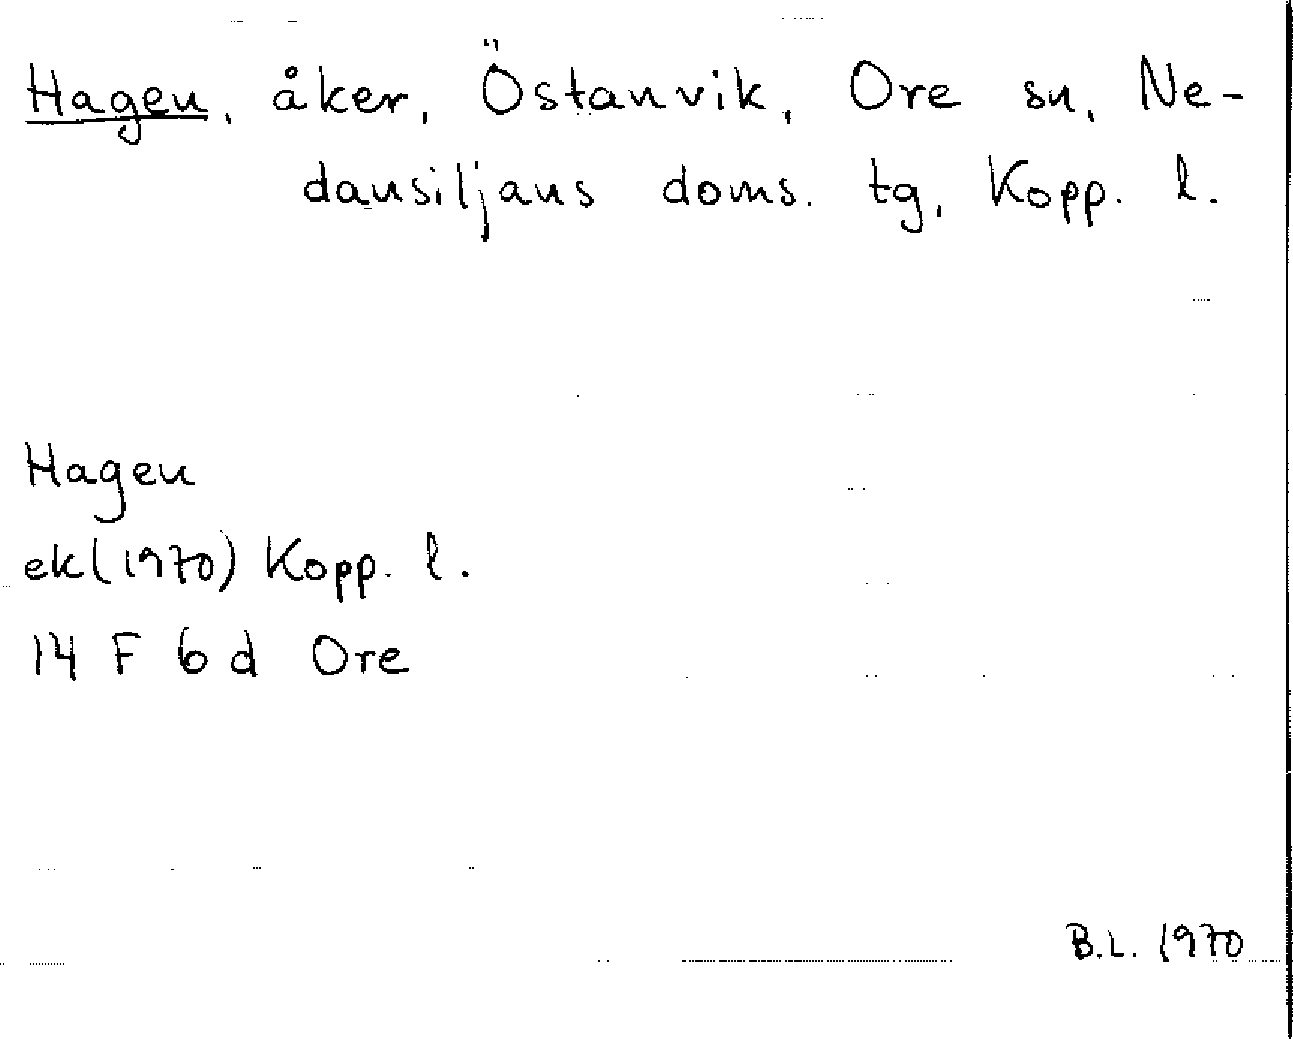 Hagen, åker, Östanvik, Ore sn, Ne-
dansiljans doms. tg, Kopp. l.
Hagen
ek(1970) Kopp. l.
14 F 6 d Ore
B.L. 1970